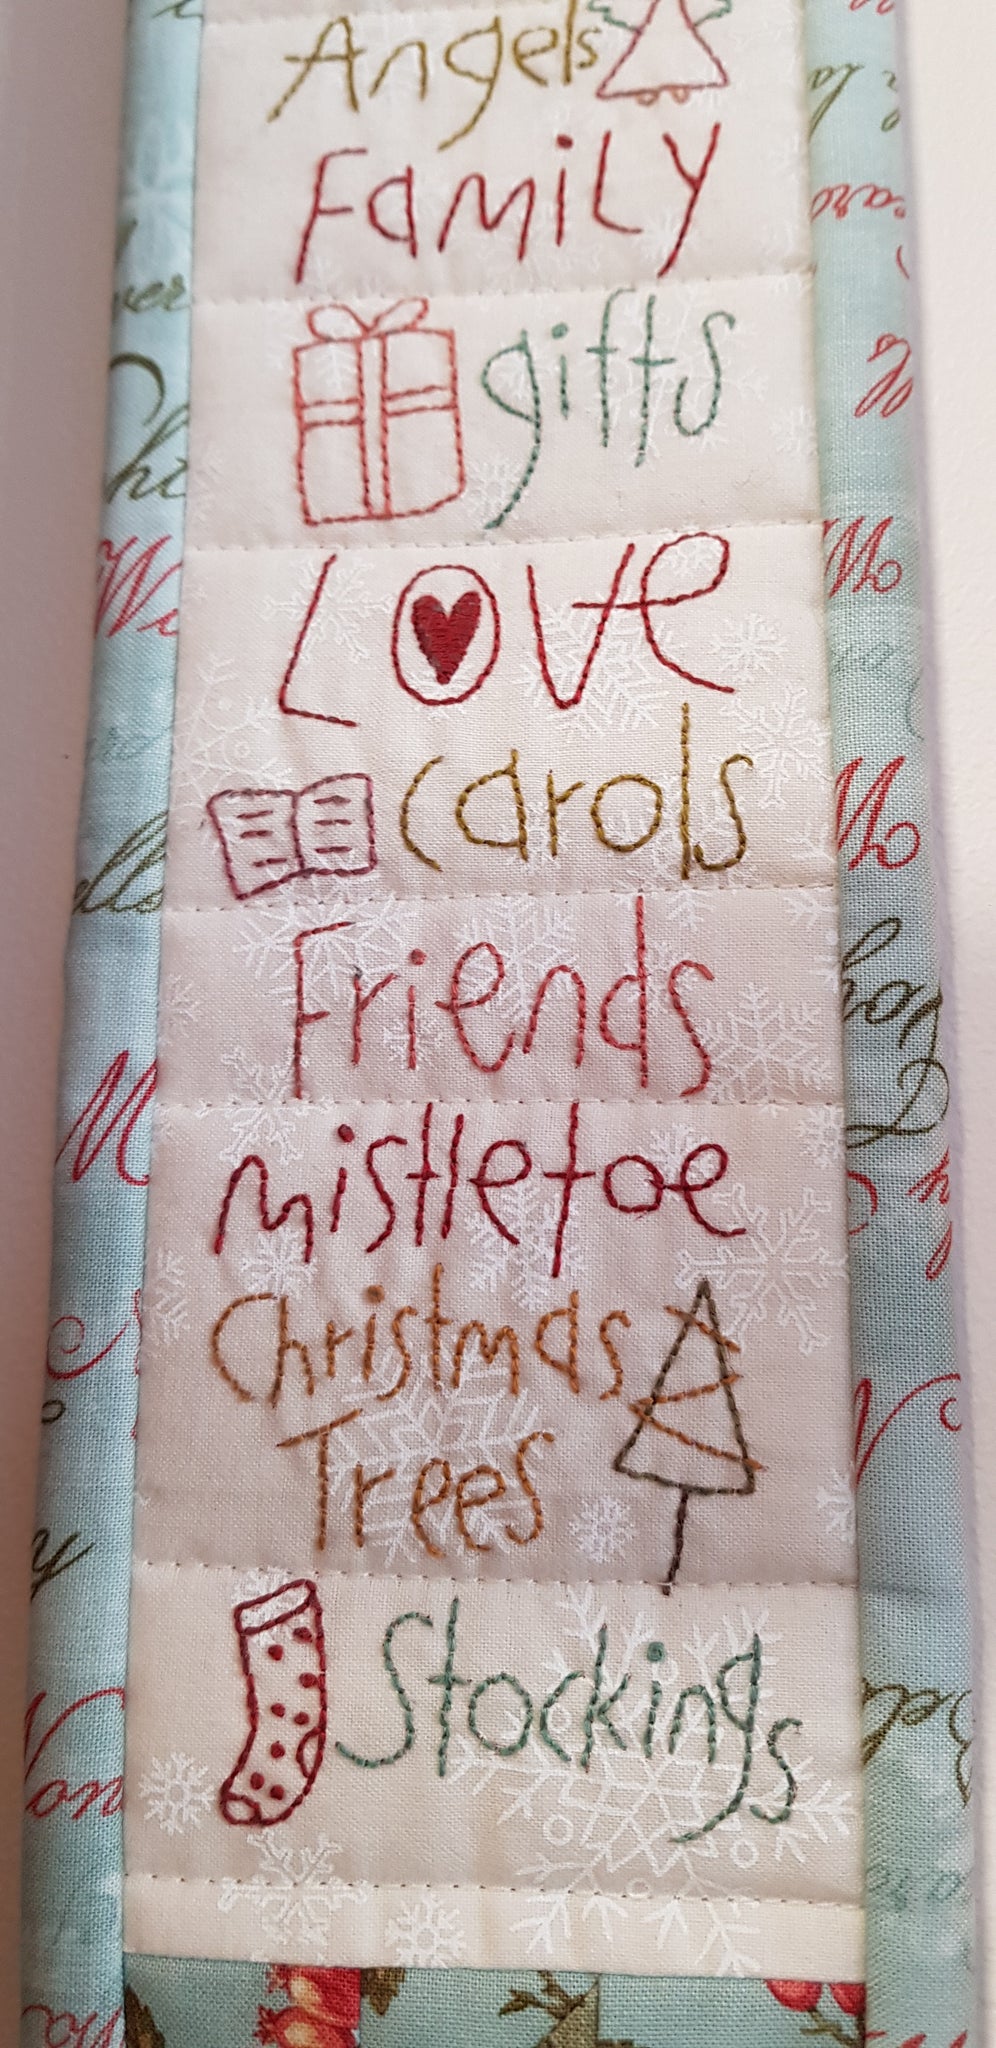 Angels
Family
gifts
Love
carols
Friends
mistletoe
Christmas
Trees
Stockings